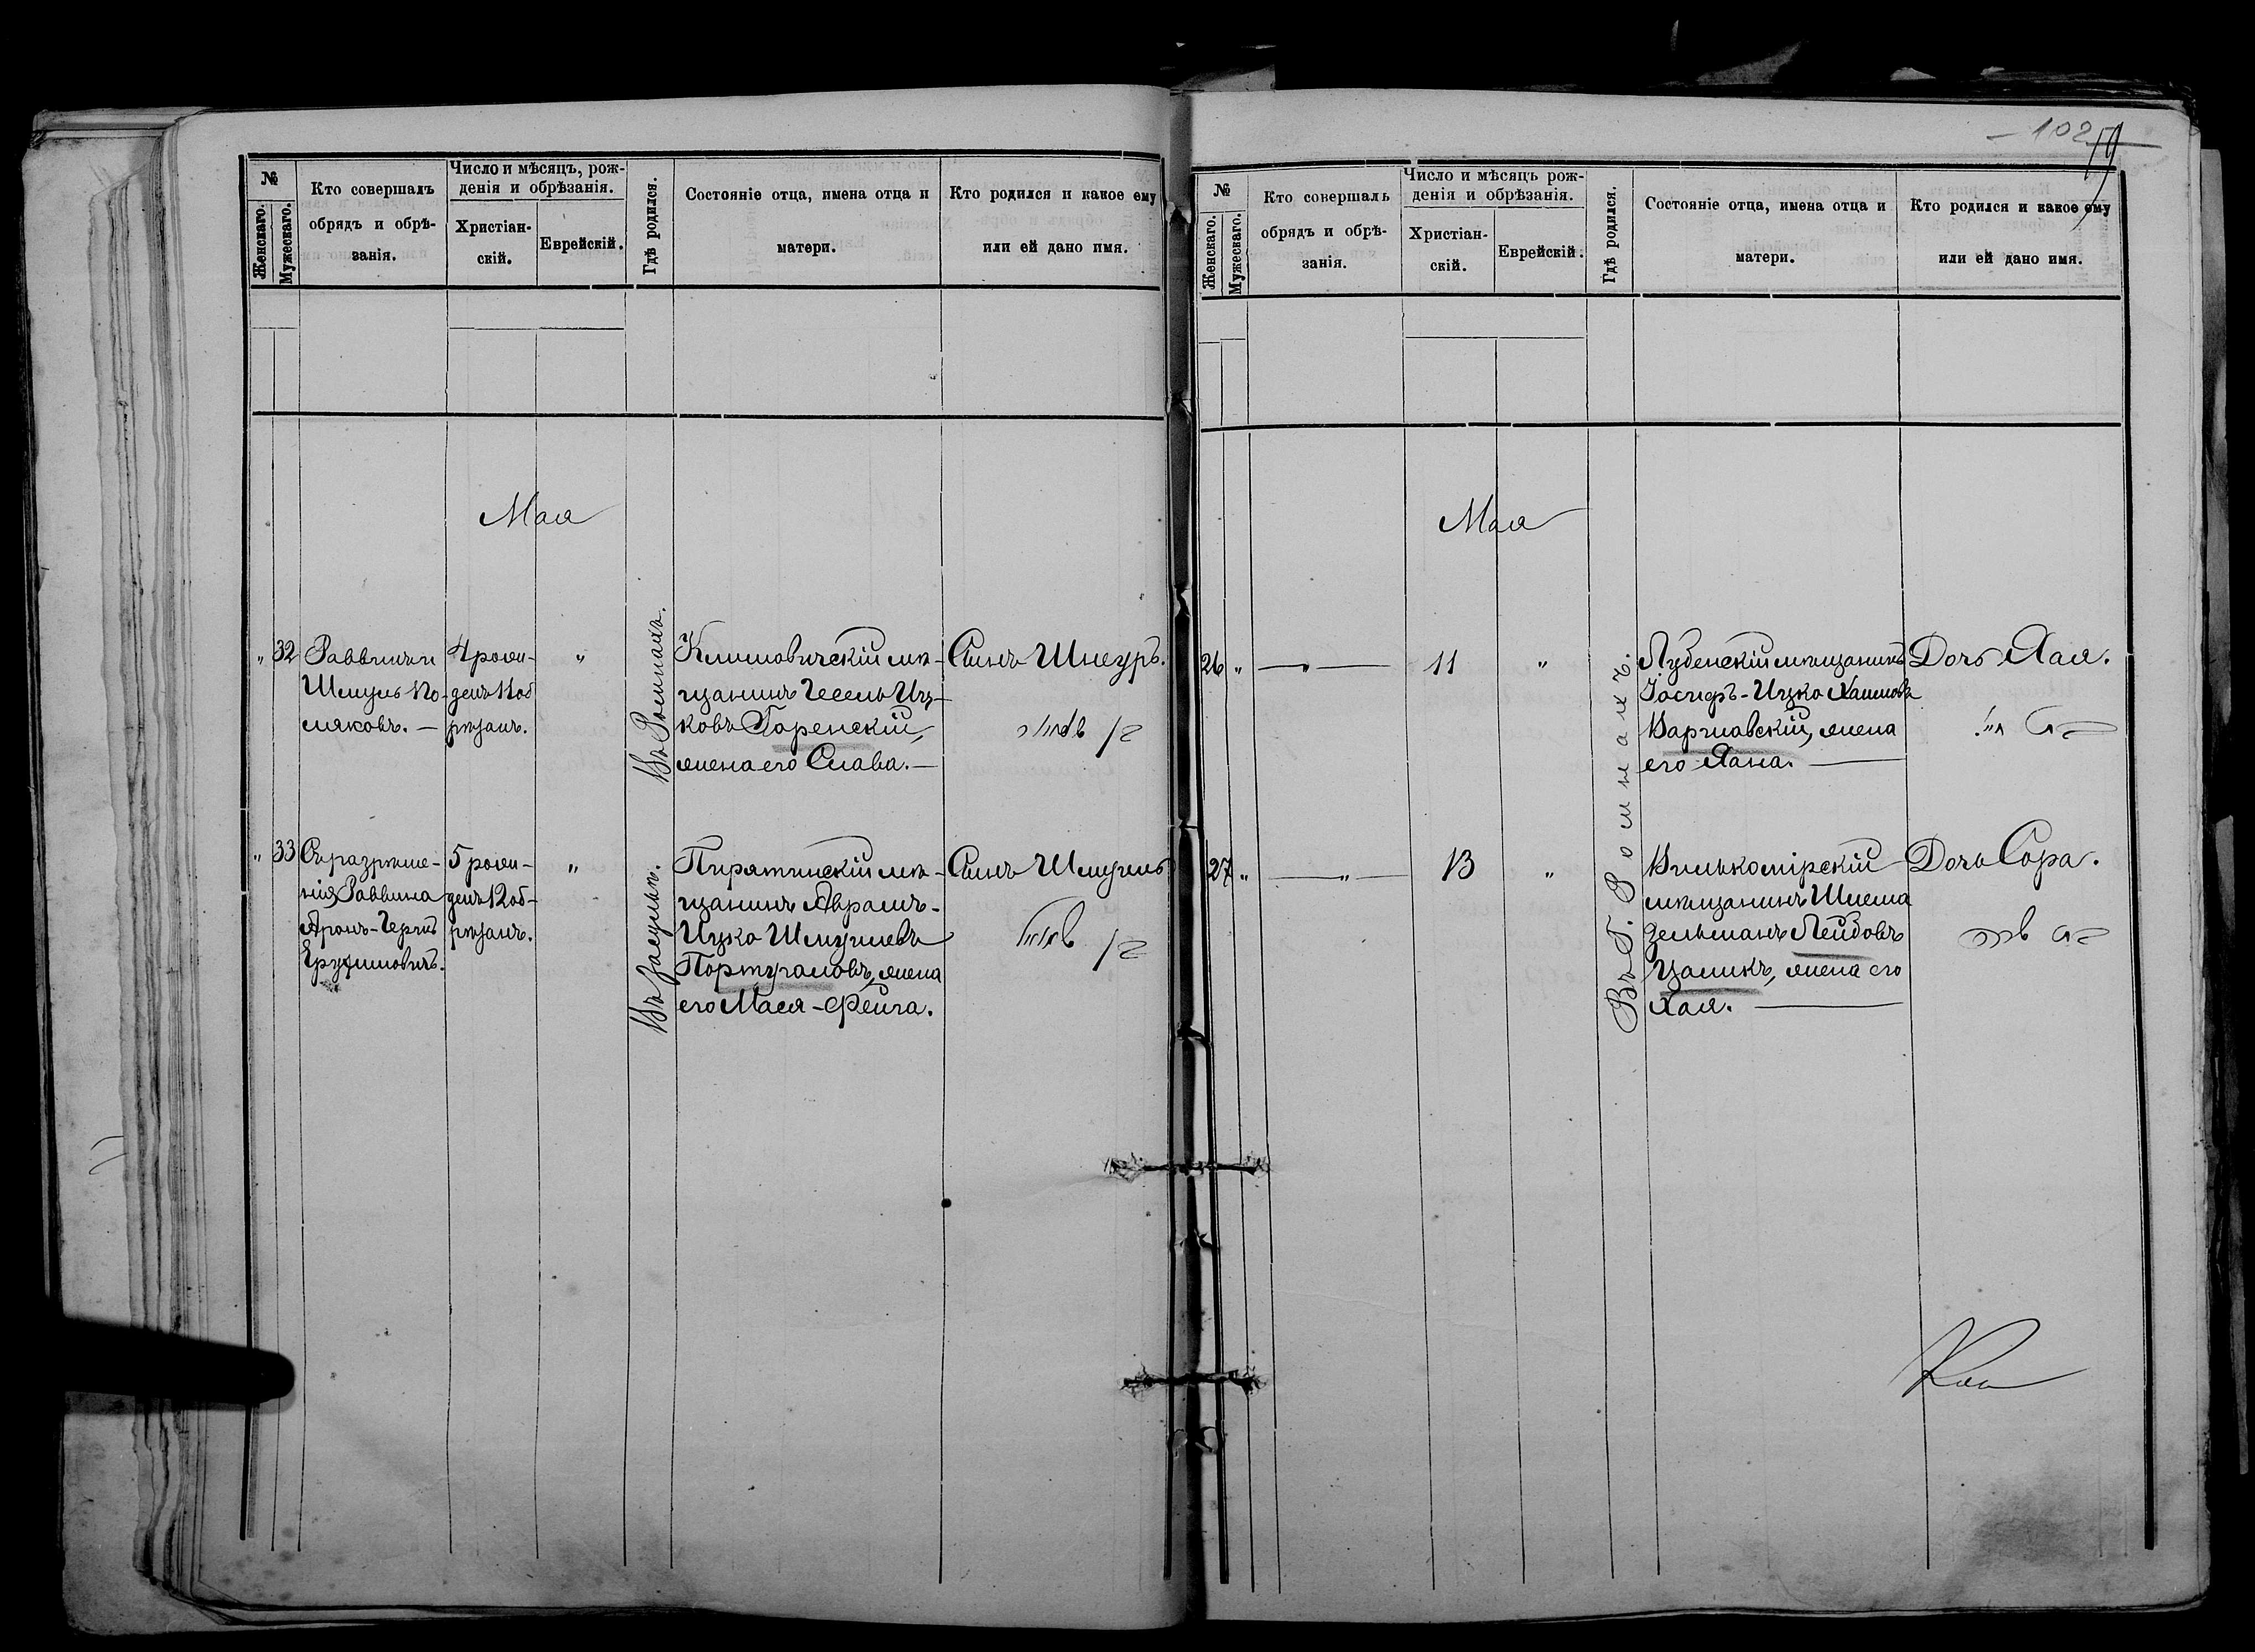 102
№
Женскаго.
Мужескаго.
Кто совершалъ
обрядъ и обрѣ-
занія.
Число и мѣсяцъ, рож-
денія и обрѣзанія.
Христіан-
скій.
Еврейскій.
Гдѣ родился.
Состояніе отца, имена отца и
матери.
Кто родился и какое ему
или ей дано имя.
Мая
„
32
Раввинъ и
Шмуль По-
ляковъ. —
4 рожд-
денъ 11 об
рѣзанъ.
„
Въ Ромнахъ.
Климовичскій мѣ-
щанинъ Іесель Иц-
ковъ Горенскій,
жена его Слава. —
Сынъ Шнеуръ.
בן
„
33
Съ разрѣше-
нія Раввина
Аронъ-Герцъ
5 рожд-
денъ 12 об-
рѣзанъ.
„
Въ Засульѣ.
Пирятинскій мѣ-
щанинъ Абрамъ-
Ицко Шмуилевъ
Португаловъ, жена
его Мася-Фейга.
Сынъ Шмуилъ
בן
№
Женскаго.
Мужескаго.
Кто совершалъ
обрядъ и обрѣ-
занія.
Число и мѣсяцъ рож-
денія и обрѣзанія.
Христіан-
скій.
Еврейскій.
Гдѣ родился.
Состояніе отца, имена отца и
матери.
Кто родился и какое ему
или ей дано имя.
Мая
26
„
— „ —
11
„
Въ Г. Ромнахъ.
Лубенскій мѣщанинъ
Іосифъ-Ицко Хаимовъ
Варшавскій, жена
его Хана. —
Дочь Хая.
בת חי׳
27
„
— „ —
13
„
Вилькомірскій
мѣщанинъ Шлема
Зельманъ Лейбовъ
Цаликъ, жена его
Хая. —
Дочь Сора.
בת שרה